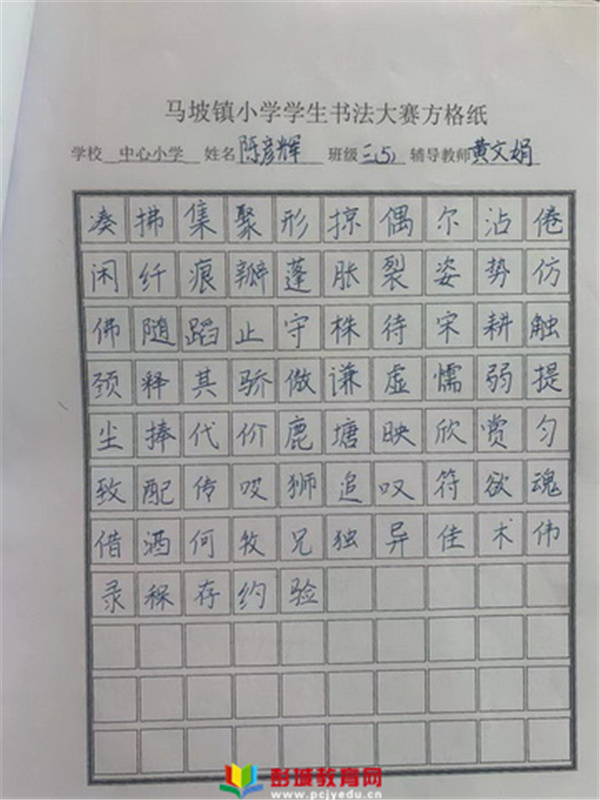 马坡镇小学学生书法大赛方格纸
学校 中心小学 姓名 陈彦辉 班级 三(5) 辅导教师 黄文娟
凑拂集聚形掠偶尔沾倦
闲纤痕瓣蓬胀裂姿势仿
佛随蹈止守株待宋耕触
颈释其骄傲谦虚懦弱提
尘捧代价鹿塘映欣赏匀
致配传哎狮追叹符欲魂
借酒何牧兄独异佳术伟
录稼存约验
彭城教育网
www.pcjyedu.cn